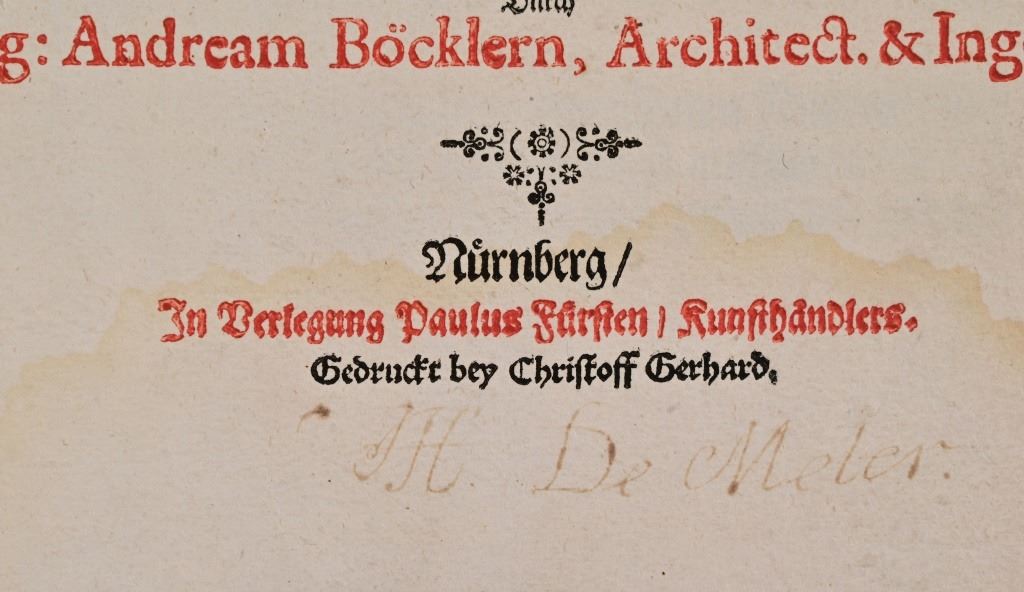 Durch
g: Andream Böcklern, Architect. & Ing
Nůrnberg/
In Verlegung Paulus Fürsten / Kunsthåndlers.
Gedruckt bey Christoff Gerhard.
JH. De Meter.